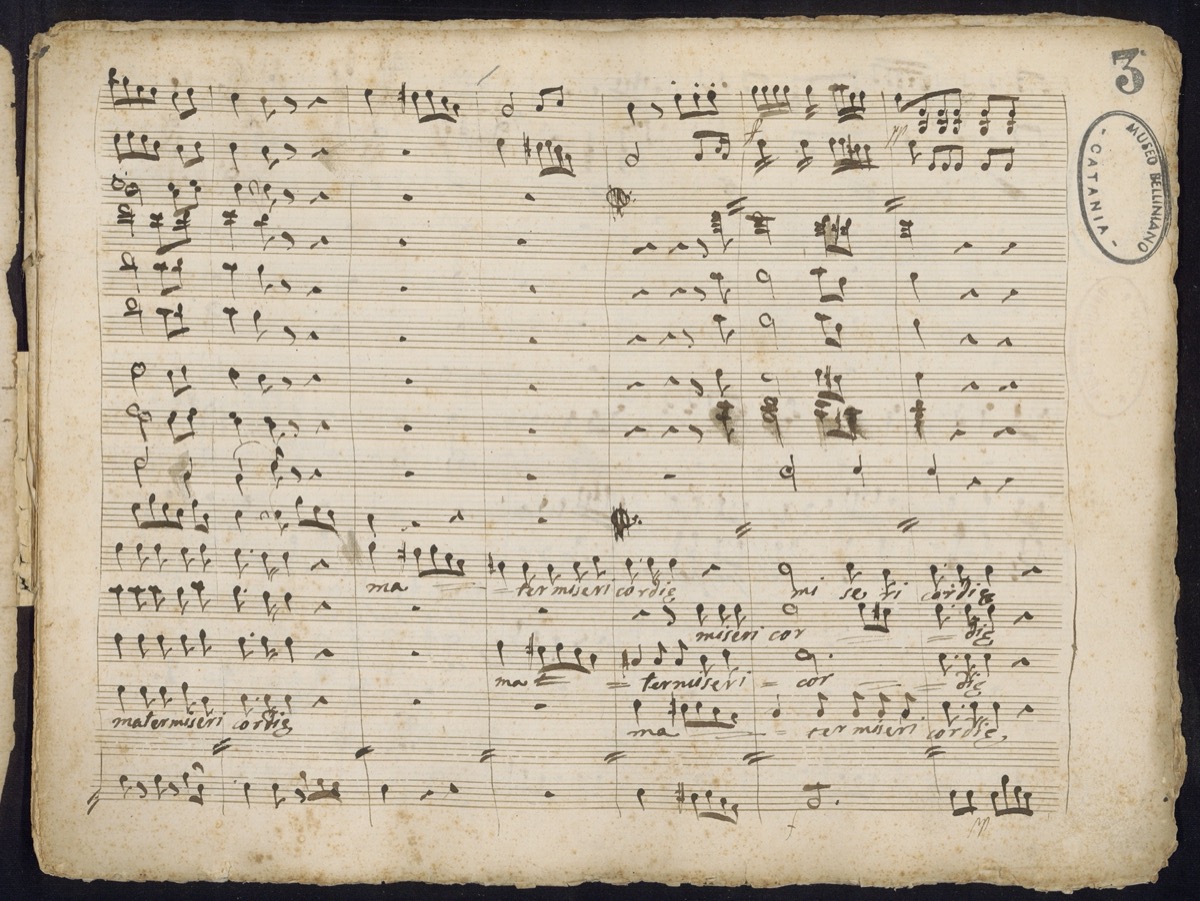 3
MUSEO BELLINIANO
- CATANIA -
f
pp
ma = ter miseri cordie mi se ri cordie
miseri cor = die
ma = = ter miseri = cor = = die
mater miseri cordie ma = ter miseri cordie,
f
pp